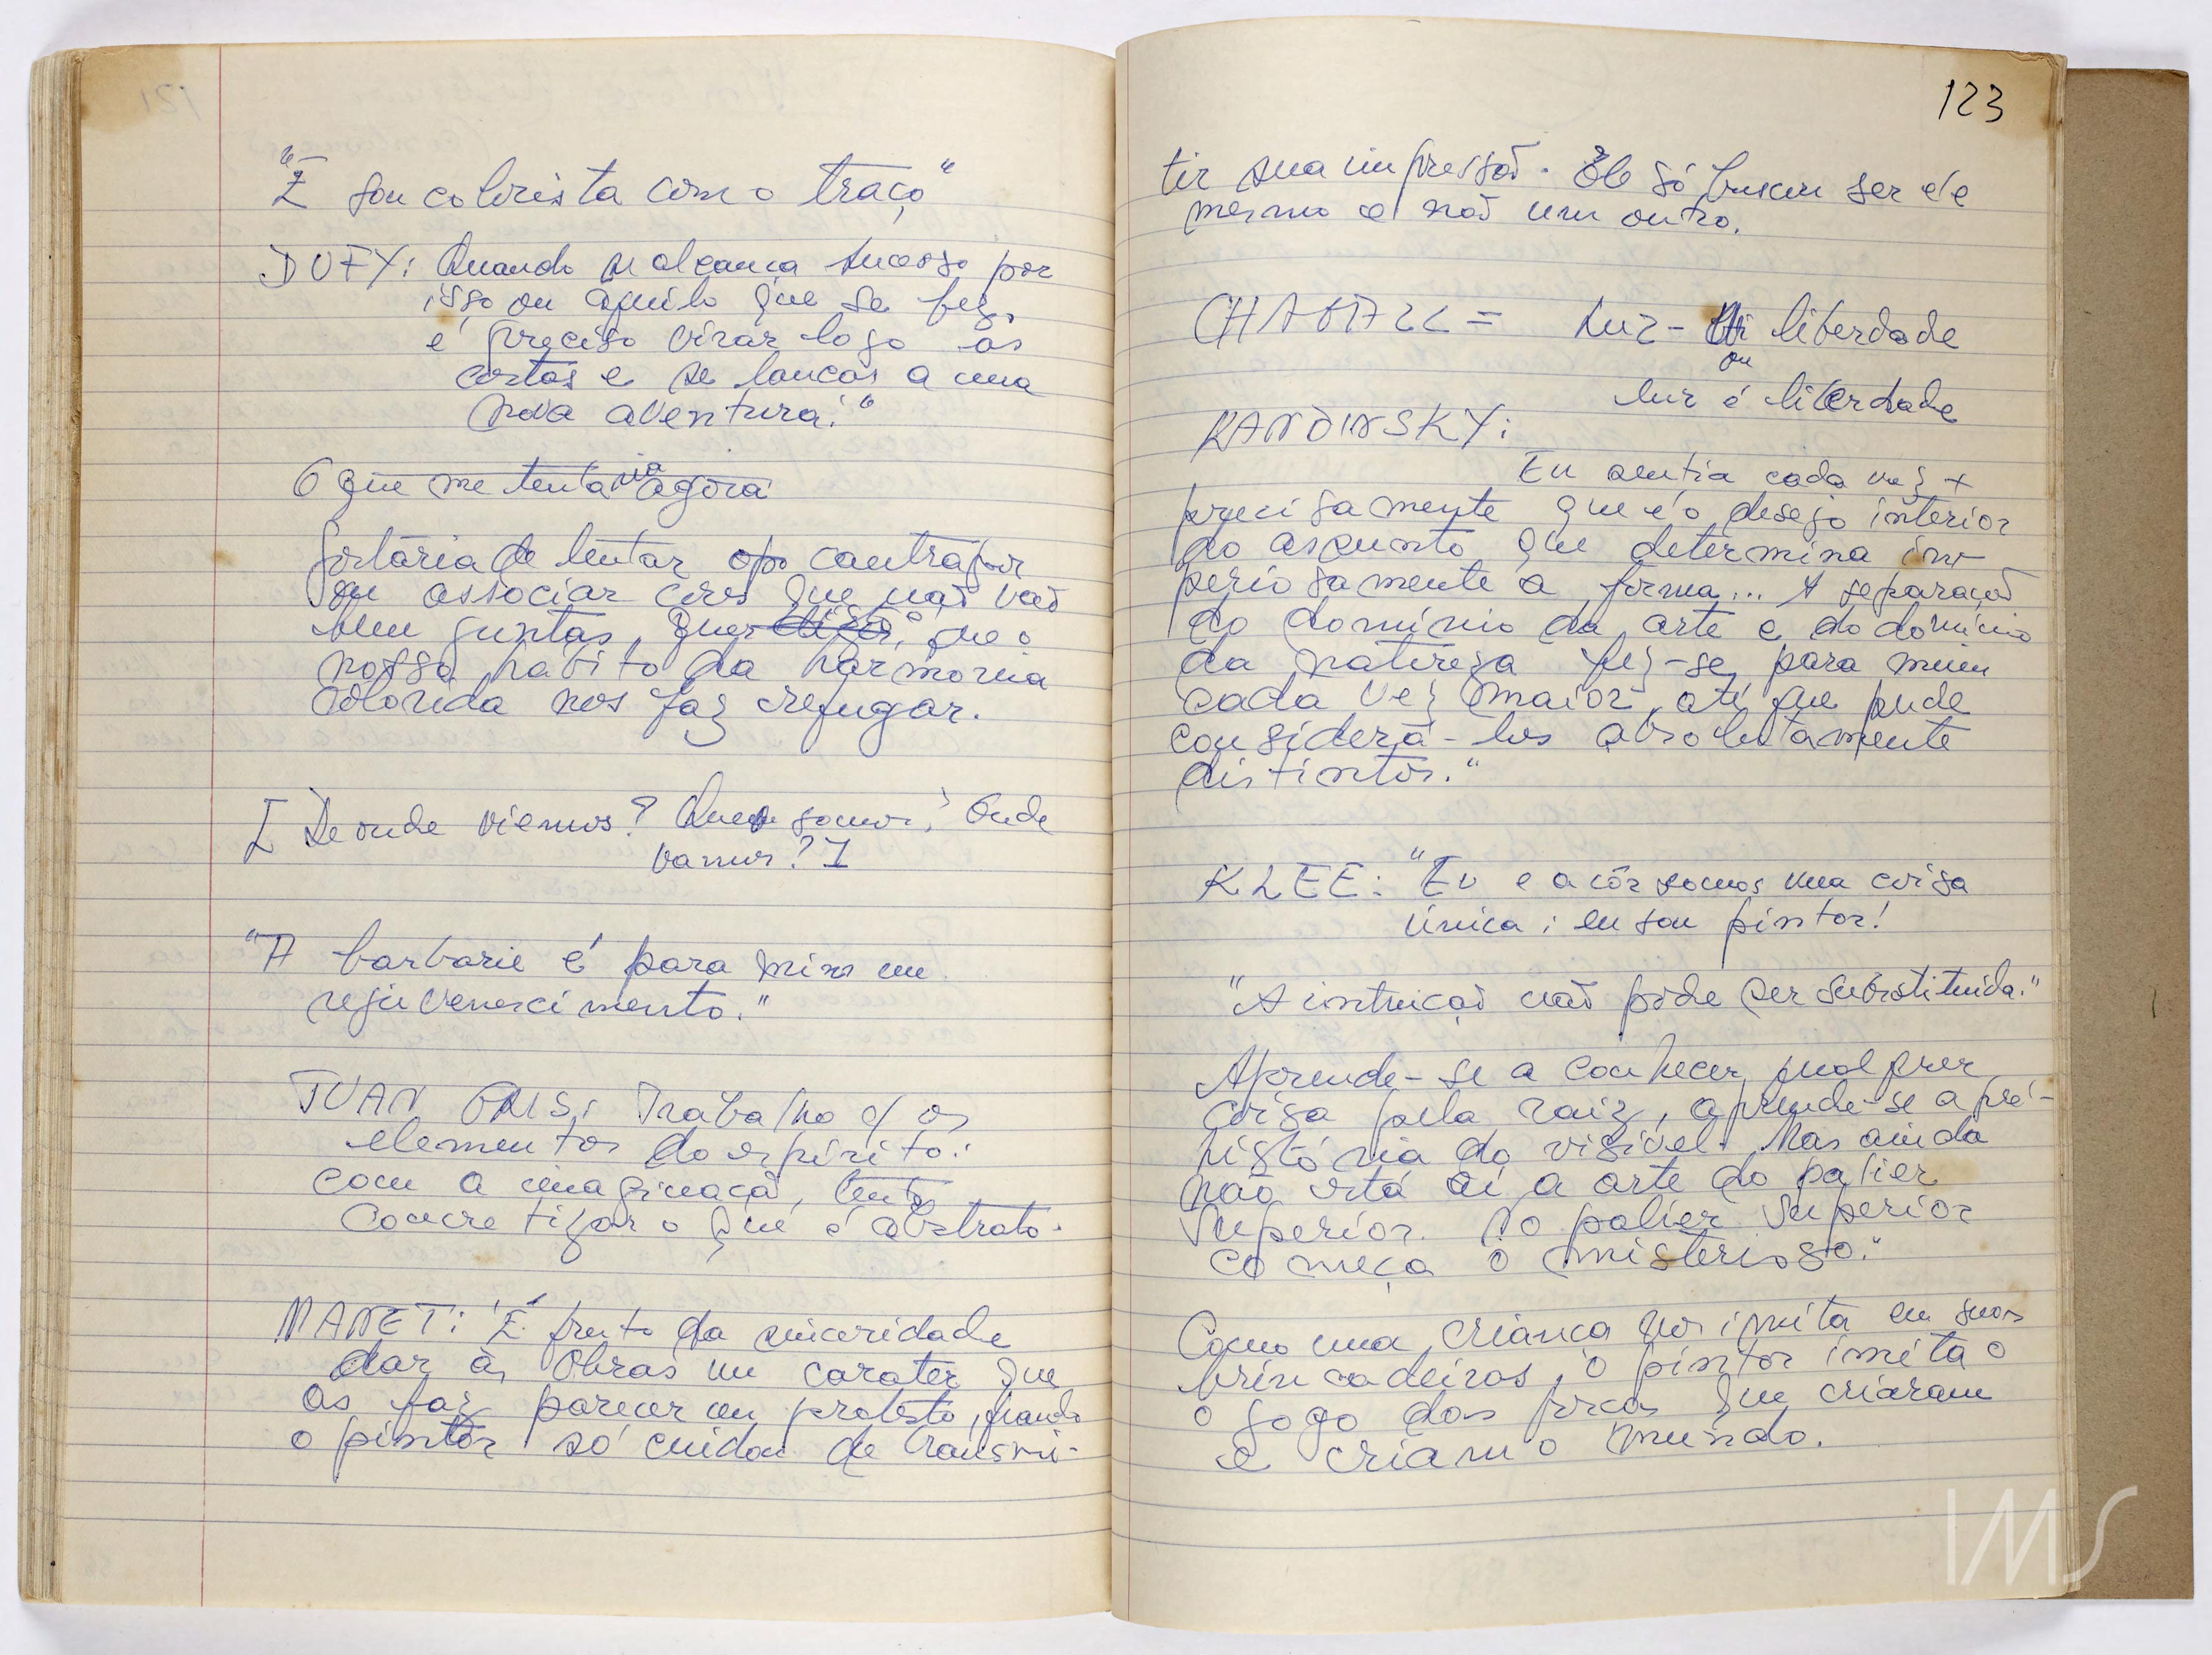 "E sou colorista com o traço"
DUFY: Quando se alcança sucesso por
isso ou aquilo que se fez,
é preciso virar logo as
costas e se lançar a uma
nova aventura."
O que me tentaria agora
Gostaria de tentar opo contrapor
ou associar cores que não vão
bem juntas, quer dizer, que o
nosso hábito da harmonia
colorida nos faz refugar.
[De onde viemos? Quem somos? Onde
vamos?]
"A barbarie é para mim um
rejuvenescimento."
JUAN GRIS: Trabalho c/ os
elementos do espírito:
com a imaginação, tento
concretizar o que é abstrato.
MANET: "É fruto da sinceridade
dar às obras um carater que
as faz parecer um protesto, quando
o pintor só cuidou de transmi-
123
tir sua impressão. Ele só buscou ser ele
mesmo e não um outro.
CHAGALL = Luz - liberdade
ou
luz é liberdade
KANDINSKY:
Eu sentia cada vez +
precisamente que é o desejo interior
do assunto que determina im-
periosamente a forma... A separação
do domínio da arte e do domínio
da natureza fez-se para mim
cada vez maior, até que pude
considerá-los absolutamente
distintos."
KLEE: "Eu e a côr somos uma coisa
única; eu sou pintor!
"A intuição não póde ser substituida."
Aprende-se a conhecer qualquer
coisa pela raiz, aprende-se a pré-
história do visível. Mas ainda
não está aí a arte do palier
superior. No palier superior
começa o misterioso."
Como uma criança nos imita em suas
brincadeiras, o pintor imita o
o jogo das forças que criaram
e criam o mundo.
IMS